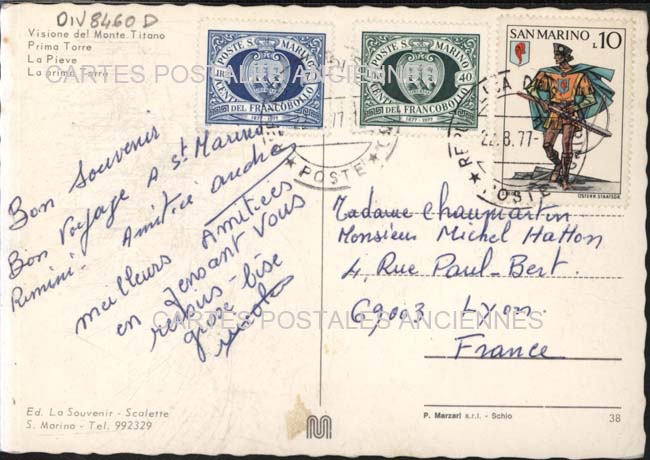 DIV 8460 D
Visione del Monte Titano
Prima Torre
La Pieve
La prima Torre
CARTES POSTALES ANCIENNES
POSTE S. MARINO
LIRE
CENT. DEL FRANCOBOLLO
1877 - 1977
POSTE S. MARINO
LIRE 40
CENT. DEL FRANCOBOLLO
1877 - 1977
SAN MARINO L.10
22.8.77
POSTE
POSTE
Bon Souvenir
Bon Voyage A St Marino
Rimini - Amitié andré
meilleurs Amitiées
en pensant Vous
grosse
Madame Chaumartin
Monsieur Michel Hatton
4, Rue Paul-Bert.
69003 Lyon.
France
CARTES POSTALES ANCIENNES
Ed. La Souvenir - Scalette
S. Marino - Tel. 992329
P. Marzari s.r.l. - Schio
38